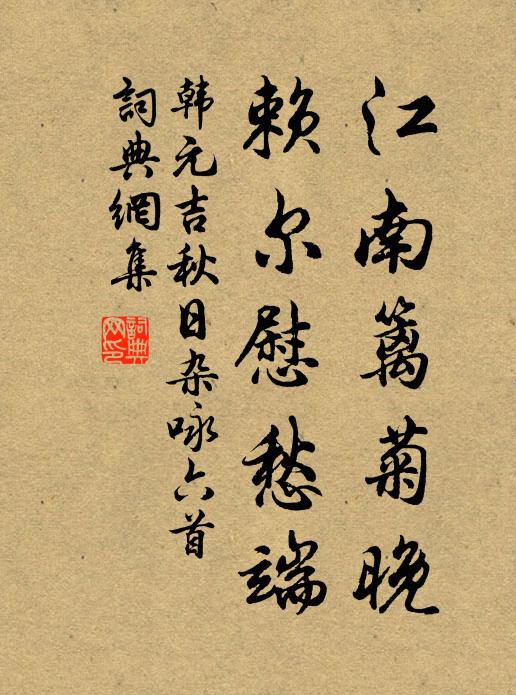 江南篱菊晚
赖尔慰愁端
韩元吉秋日杂咏六首
詞典網集
詞典网印